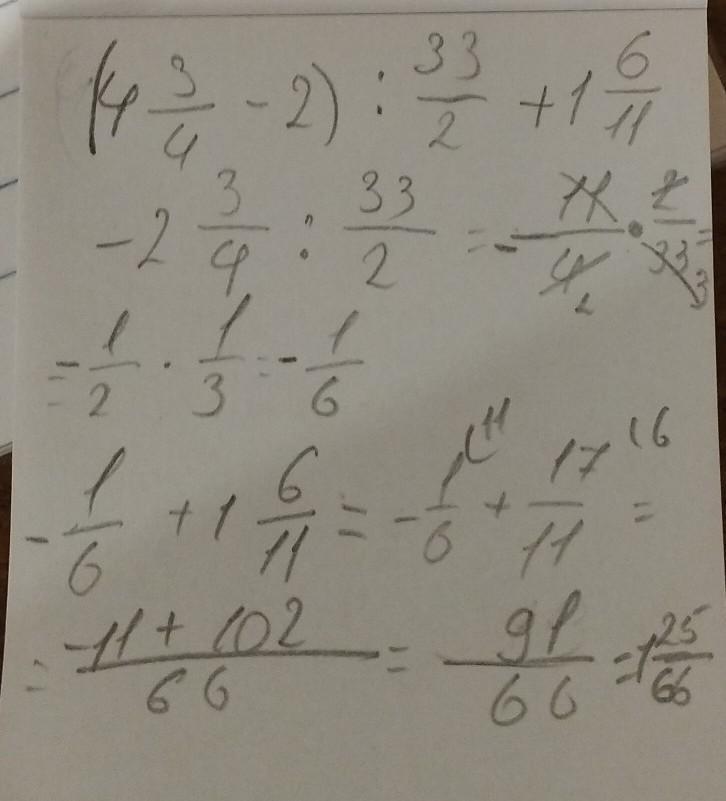 (4 3/4 - 2) : 33/2 + 1 6/11
-2 3/4 : 33/2 = - 11/4 2 · 2/33 3 =
= - 1/2 · 1/3 = - 1/6
- 1/6 + 1 6/11 = - 1/6 (11 + 17/11 (6 =
= -11 + 102/66 = 91/66 = 1 25/66